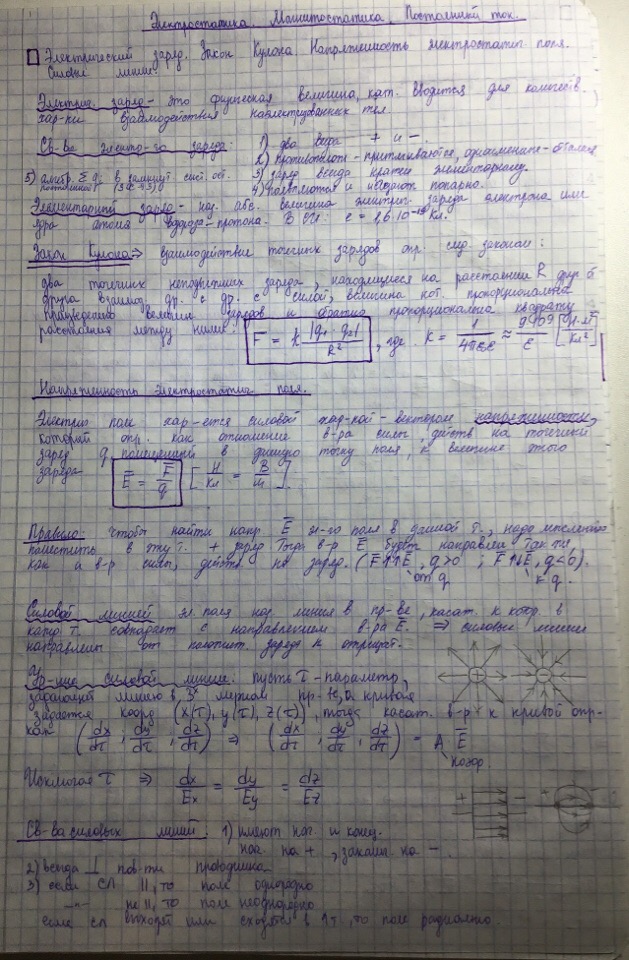 Электростатика. Магнитостатика. Постоянный ток.
Электрический заряд. Закон Кулона. Напряженность электростатич. поля.
Силовые линии.
Электрич. заряд - это физическая величина, кот. вводится для количеств.
хар-ки взаимодействия наэлектризованных тел.
Св-ва электр-го заряда: 1) два вида + и -.
2) противополож - притягиваются, одноименные - отталк
3) заряд всегда кратен элементарному.
4) появляются и исчезают попарно.
5) алгебр. Σ q; в замкнут сист. ост. постоянный (ЗСЭЗ)
Элементарный заряд - наз. абс. величина электрич. заряда электрона или
ядра атома водорода - протона. В СИ: e = 1,6·10⁻¹⁹ Кл.
Закон Кулона => взаимодействие точечных зарядов опр. след законом:
два точечных неподвижных заряда, находящиеся на расстоянии R друг от
друга взаимод. др. с др. с силой, величина кот. пропорциональна
произведению величин зарядов и обратно пропорциональна квадрату
расстояния между ними: F = k |q₁·q₂| / R², где k = 1/4πε₀ε ≈ 9·10⁹/ε [Н·м²/Кл²]
Напряженность электростатич поля.
Электрич поле хар-ется силовой хар-кой - вектором напряженности,
который опр. как отношение в-ра силы, действ на точечный
заряд q, помещенный в данную точку поля, к величине этого
заряда E = F/q [Н/Кл = В/м]
Правило: чтобы найти напр. E эл-го поля в данной т., надо мысленно
поместить в эту т. + заряд Тогда в-р E будет направлен так же,
как и в-р силы, действ на заряд. (F↑↑E, q>0 ; F↑↓E, q<0).
от q к q.
Силовой линией эл. поля наз. линия в пр-ве, касат. к котор. в
кажд т. совпадает с направлением в-ра E. => силовые линии
направлены от положит. заряда к отрицат.
Ур-ние силовой линии: пусть τ - параметр,
задающий линию в 3ˣ мерном пр-ве, а кривая
задается коорд (x(τ), y(τ), z(τ)), тогда касат. в-р к кривой опр-
как (dx/dτ, dy/dτ, dz/dτ) => (dx/dτ, dy/dτ, dz/dτ) = A E
Исключая τ => dx/Eₓ = dy/Ey = dz/Ez
Св-ва силовых линий: 1) имеют нач. и конец.
нач на +, заканч на -.
2) всегда ⊥ пов-ти проводника
3) если СЛ ||, то поле однородно
-"- не ||, то поле неоднородно
если СЛ выходят или сходятся в 1 т., то поле радиально.